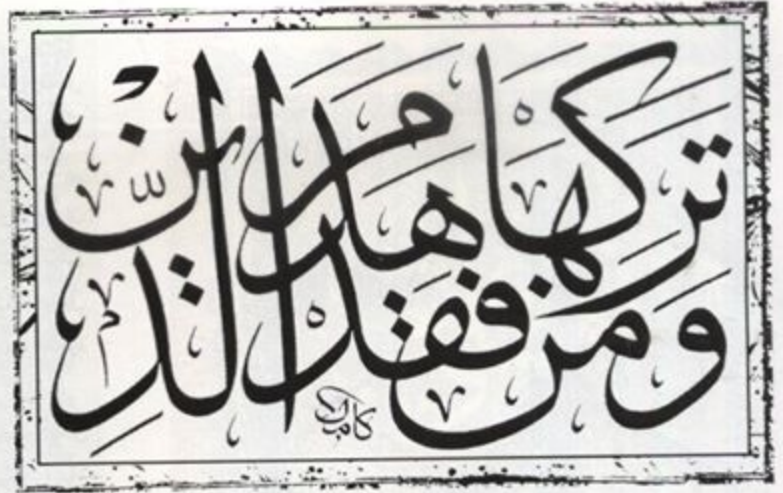 وَمَنْ تَرَكَهَا فَقَدْ هَدَمَ الدِّينَ